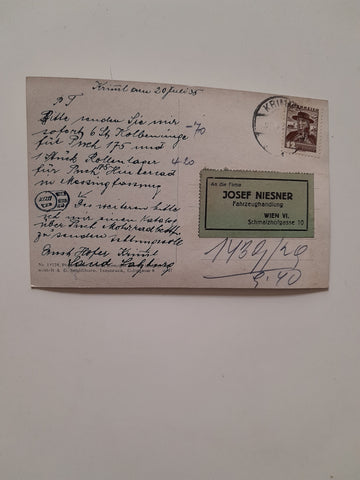 Krimml am 20 Juli 35
P.T
Bitte senden Sie mir
sofort 6 St. Kolbenringe -70
für Puch 175 und
1 Stück Rollenlager 4 20
für Puch Hinterrad
in Messingfassung
Des weiteren bitte
ich mir einen Katalog
über Puch Motorradbestt.
zu senden
Ernst Hofer Krimml
Land Salzburg
KRIMML
ÖSTERREICH
12
An die Firma
JOSEF NIESNER
Fahrzeughandlung
WIEN VI.
Schmalzhofgasse 10
1439/29
9.40